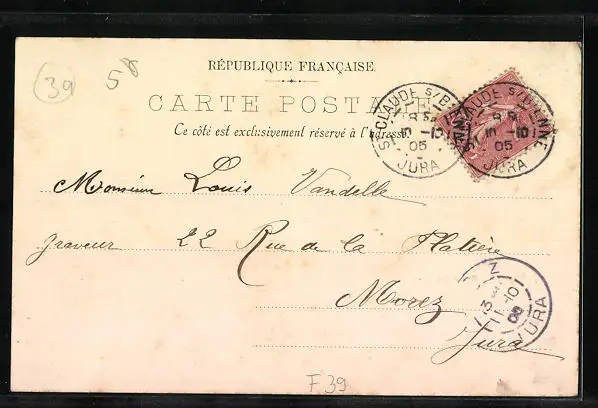 39
58
RÉPUBLIQUE FRANÇAISE
CARTE POSTALE
Ce côté est exclusivement réservé à l'adresse.
ST CLAUDE S/BIENNE
05
JURA
ST CLAUDE S/BIENNE
05
JURA
Monsieur Louis Vandelle
graveur 22 Rue de la Platière
Morez
Jura
Z
10
JURA
F 39